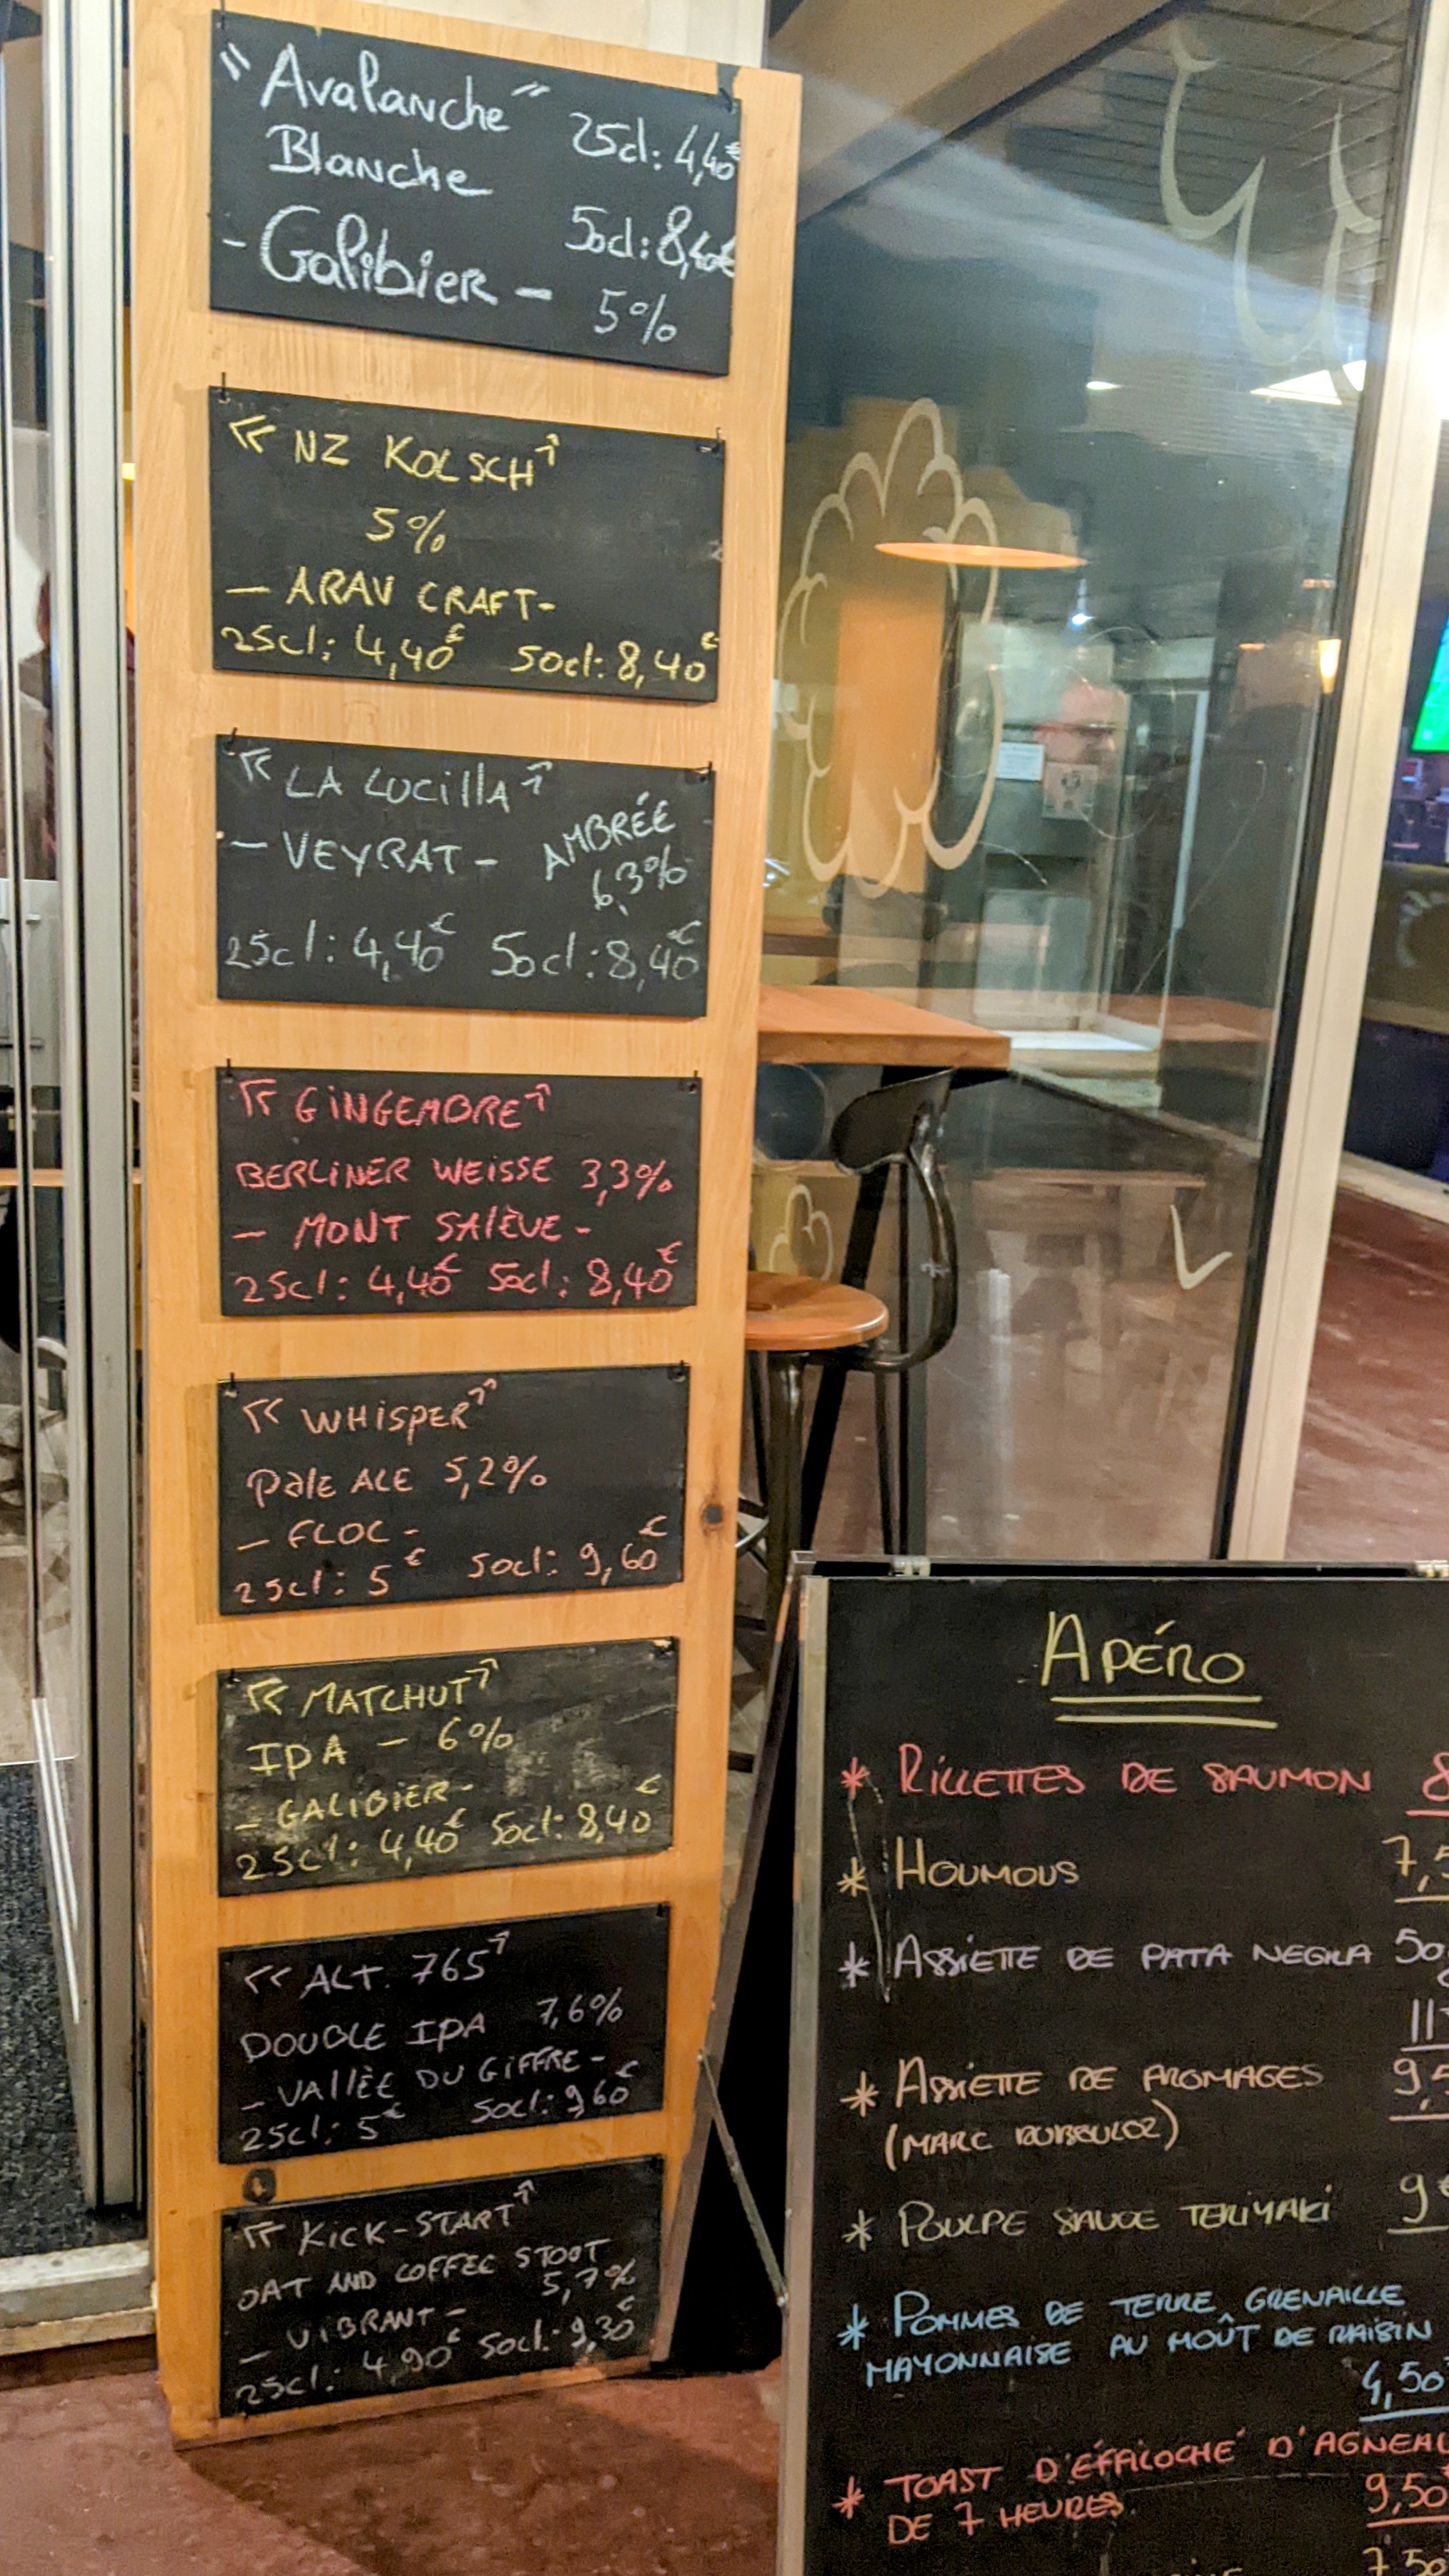 "Avalanche"
Blanche
25cl: 4,40€
50cl: 8,40€
- Galibier - 5%
<< NZ KOLSCH >>
5%
- ARAV CRAFT -
25cl: 4,40€ 50cl: 8,40€
<< LA LUCillA >>
- VEYRAT - AMBRÉE
6,3%
25cl: 4,40€ 50cl: 8,40€
<< GiNGEMBRE >>
BERLiNER WEiSSE 3,3%
- MONT SAlÈVE -
25cl: 4,40€ 50cl: 8,40€
<< WHiSPER >>
Pale ALE 5,2%
- FLOC -
25cl: 5€ 50cl: 9,60€
<< MATCHUT >>
IPA - 6%
- GALIBIER -
25cl: 4,40€ 50cl: 8,40€
<< ALT. 765 >>
DOUBLE IPA 7,6%
- VAllÉE DU GiFFRE -
25cl: 5€ 50cl: 9,60€
<< KiCK-START >>
OAT AND COFFEE STOUT
5,7%
- ViBRANT -
25cl: 4,90€ 50cl: 9,30€
APÉRO
* RILLETTES DE SAUMON 8
* HOUMOUS 7,5
* ASSIETTE DE PATA NEGRA 50g
11
* ASSIETTE DE FROMAGES 9,5
(MARC DUBOULOZ)
* POULPE SAUCE TERIYAKI 9€
* POMMES DE TERRE GRENAILLE
MAYONNAISE AU MOÛT DE RAISIN
4,50
* TOAST D'ÉFFILOCHÉ D'AGNEAU
DE 7 HEURES. 9,50
7,50